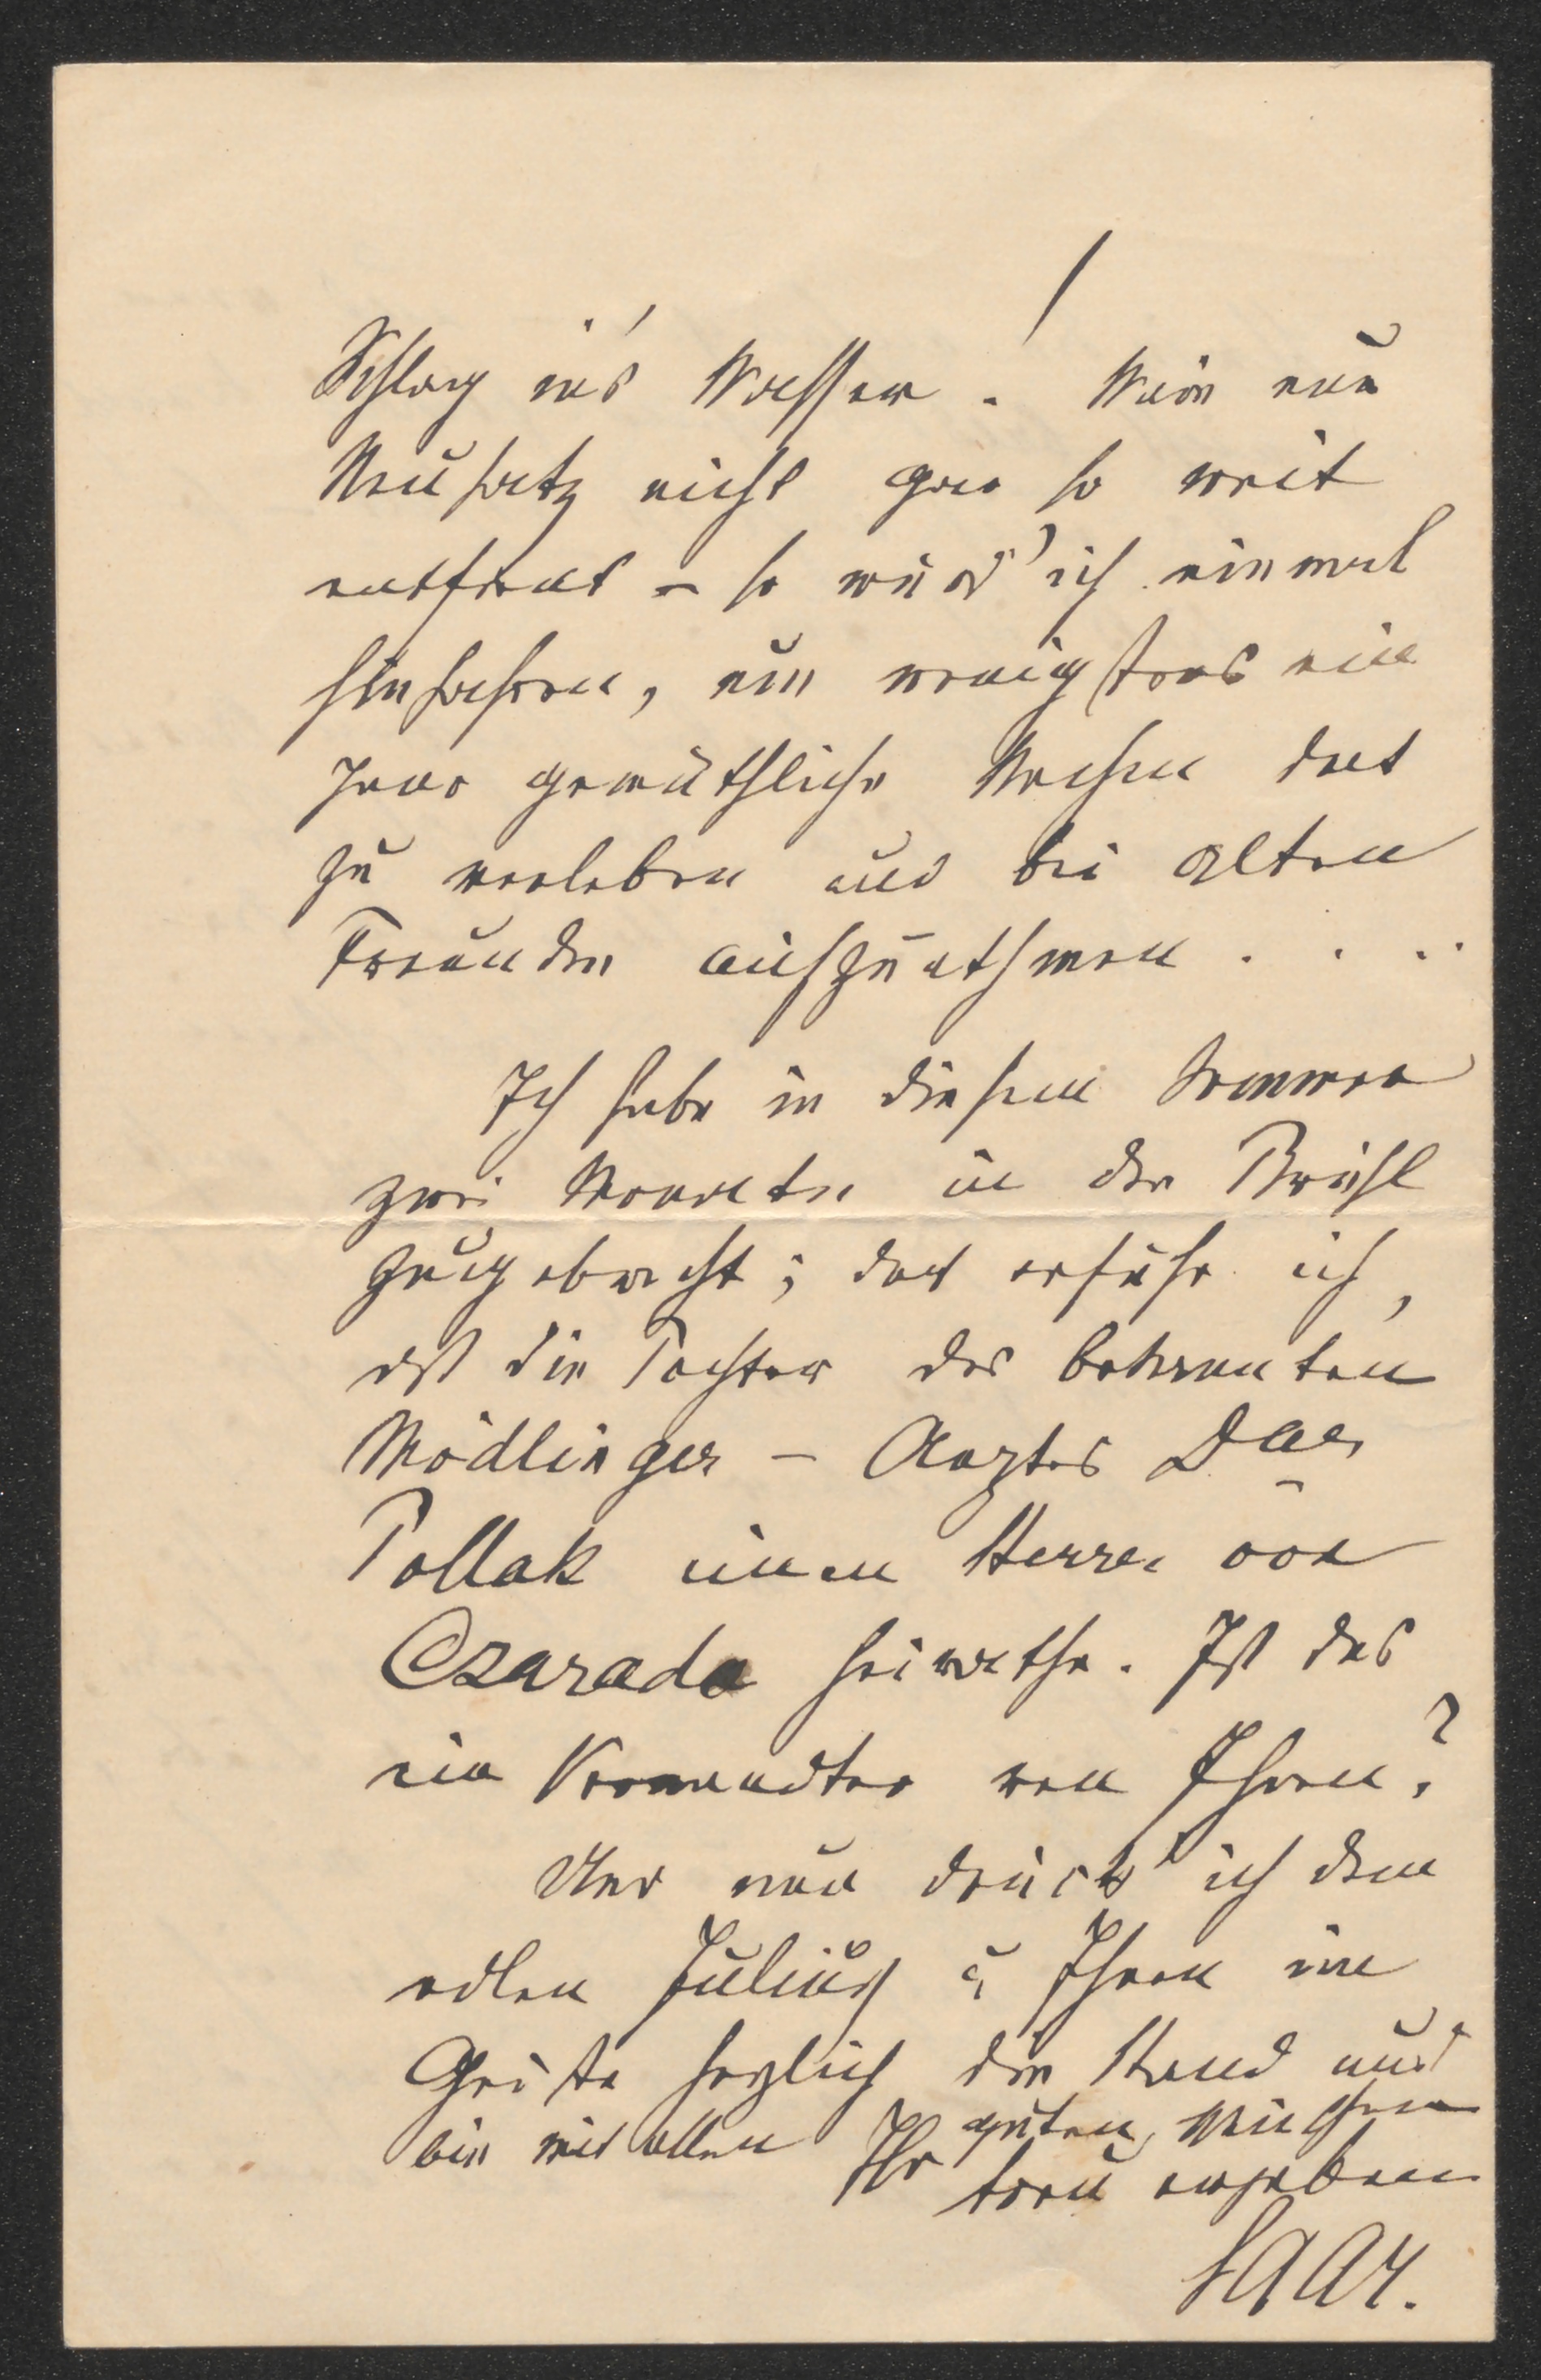 Schlag in's Wasser. Wär nur
Neusatz nicht gar so weit
entfernt – so würd' ich einmal
hinfahren, um wenigstens ein
paar gemüthliche Wochen dort
zu verleben und bei alten
Freunden aufzuathmen . . . .
Ich habe in diesem Sommer
zwei Monate in der Brühl
zugebracht; dort erfuhr ich,
daß die Tochter des bekannten
Mödlinger – Arztes Dr
Pollak einen Herrn von
Czarada heirathe. Ist das
ein Verwandter von Ihnen?
Und nun drück' ich dem
edlen Julius u Ihnen im
Geiste herzlich die Hand und
bin mit allen guten Wünschen
Ihr treu ergebener
SAAR.